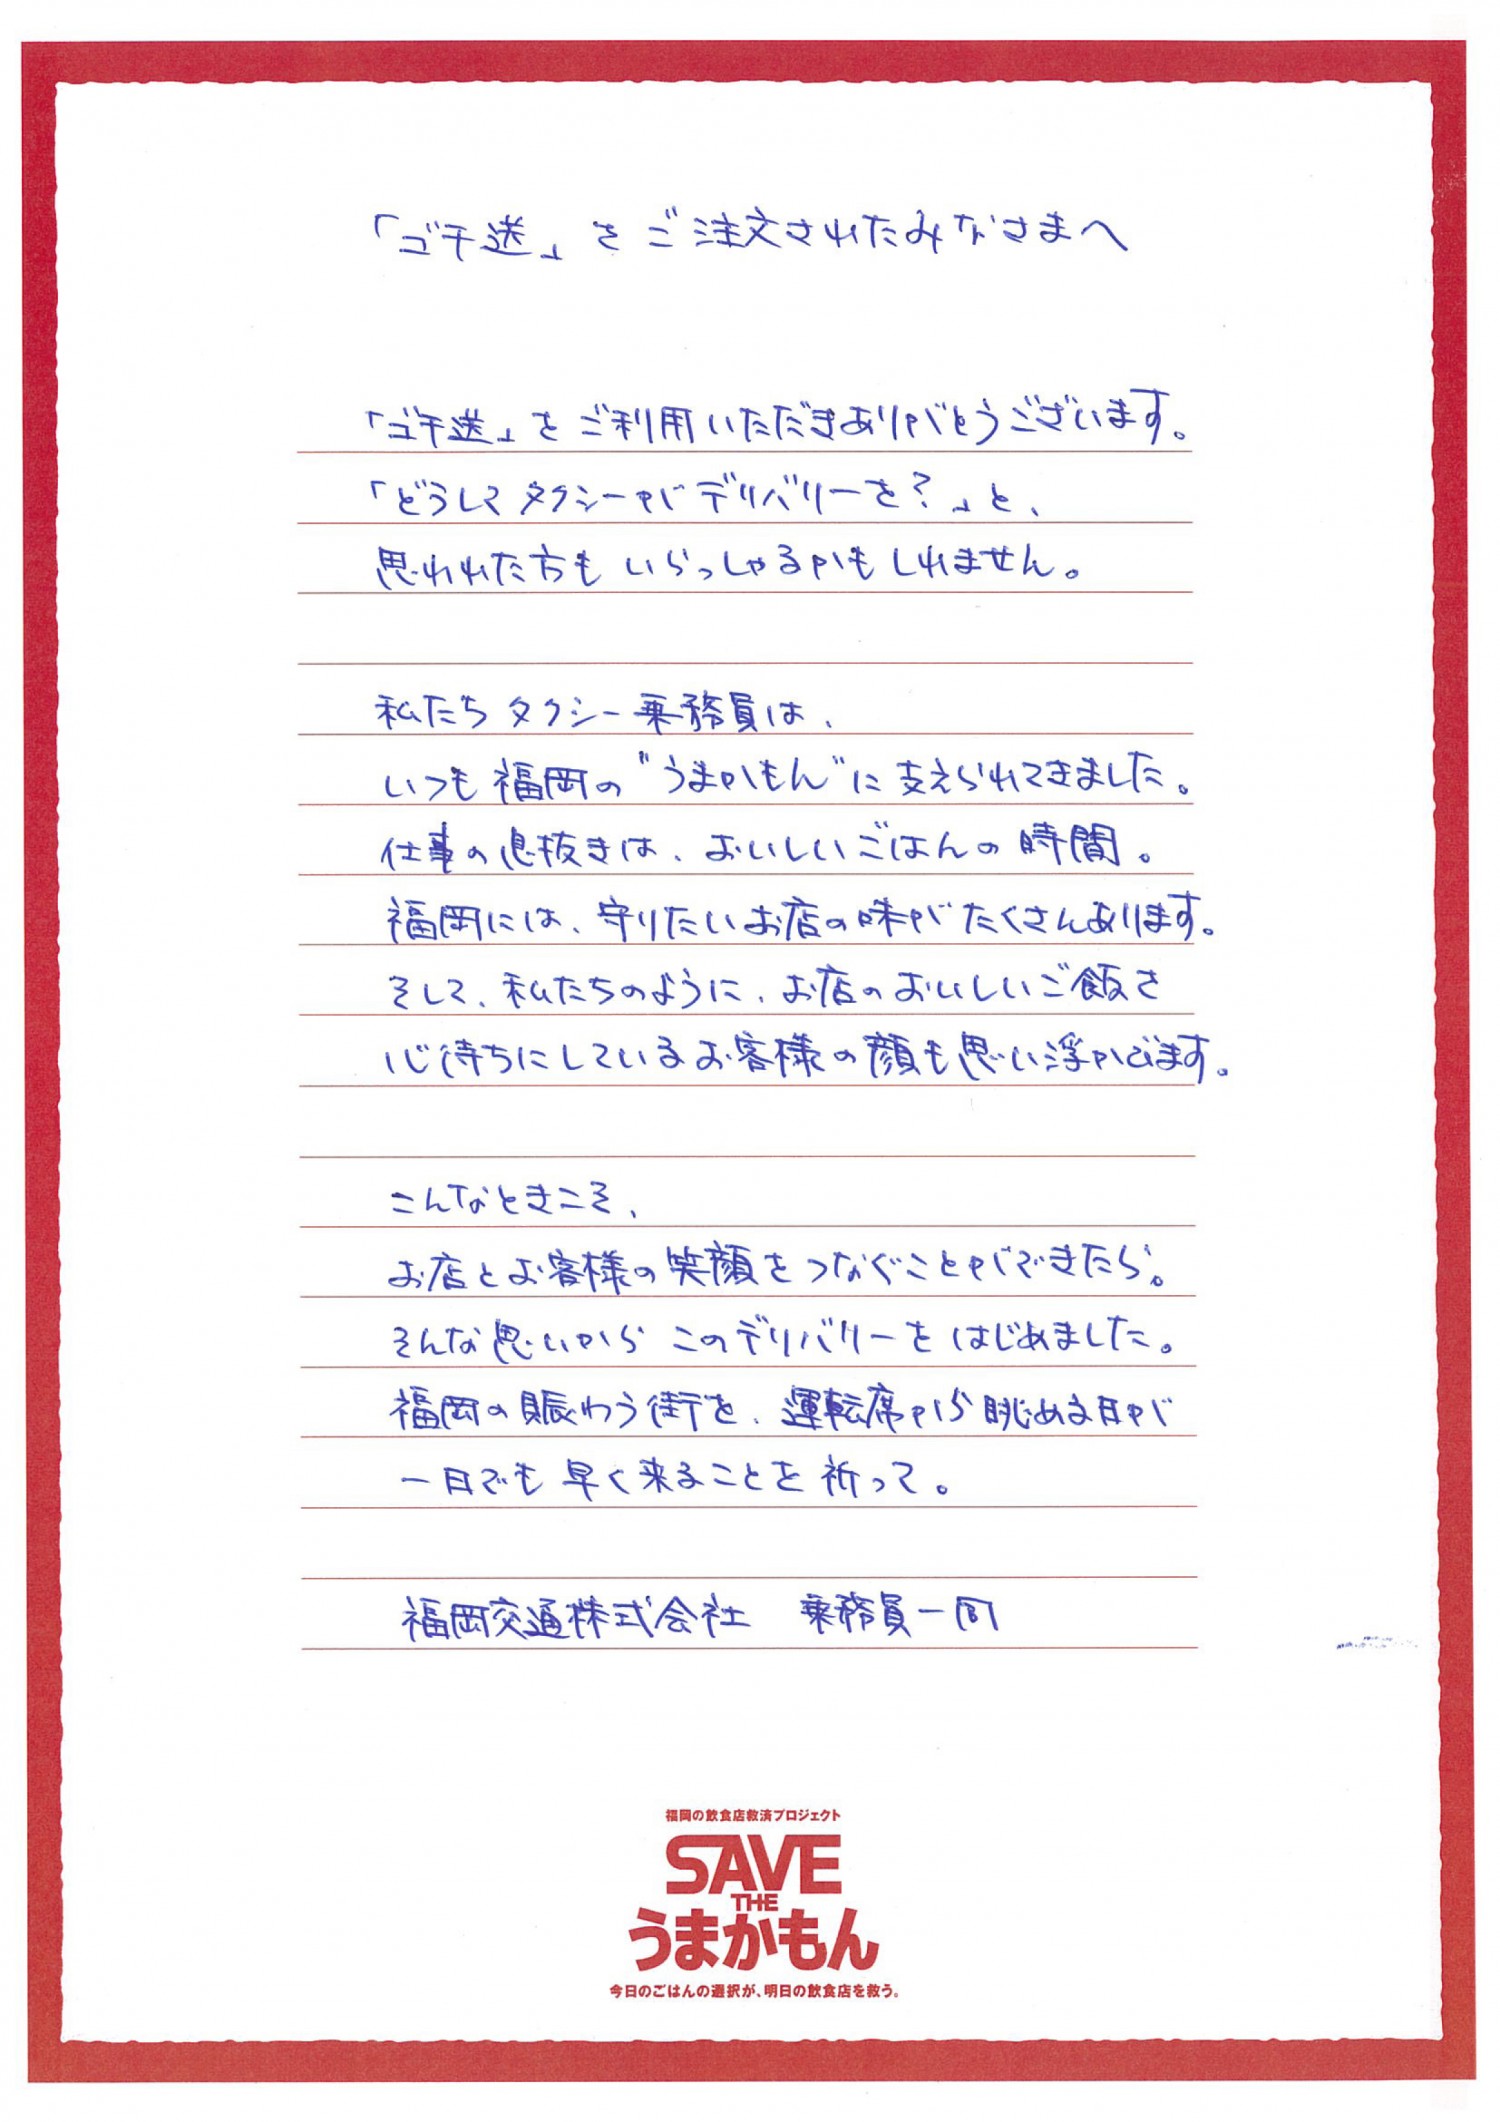 「ゴチ送」をご注文されたみなさまへ
「ゴチ送」をご利用いただきありがとうございます。
「どうしてタクシーがデリバリーを？」と、
思われた方もいらっしゃるかもしれません。
私たちタクシー乗務員は、
いつも福岡の〝うまかもん〟に支えられてきました。
仕事の息抜きは、おいしいごはんの時間。
福岡には、守りたいお店の味がたくさんあります。
そして、私たちのように、お店のおいしいご飯を
心待ちにしているお客様の顔も思い浮かびます。
こんなときこそ、
お店とお客様の笑顔をつなぐことができたら。
そんな思いからこのデリバリーをはじめました。
福岡の賑わう街を、運転席から眺める日が
一日でも早く来ることを祈って。
福岡交通株式会社　乗務員一同
福岡の飲食店救済プロジェクト
SAVE
THE
うまかもん
今日のごはんの選択が、明日の飲食店を救う。